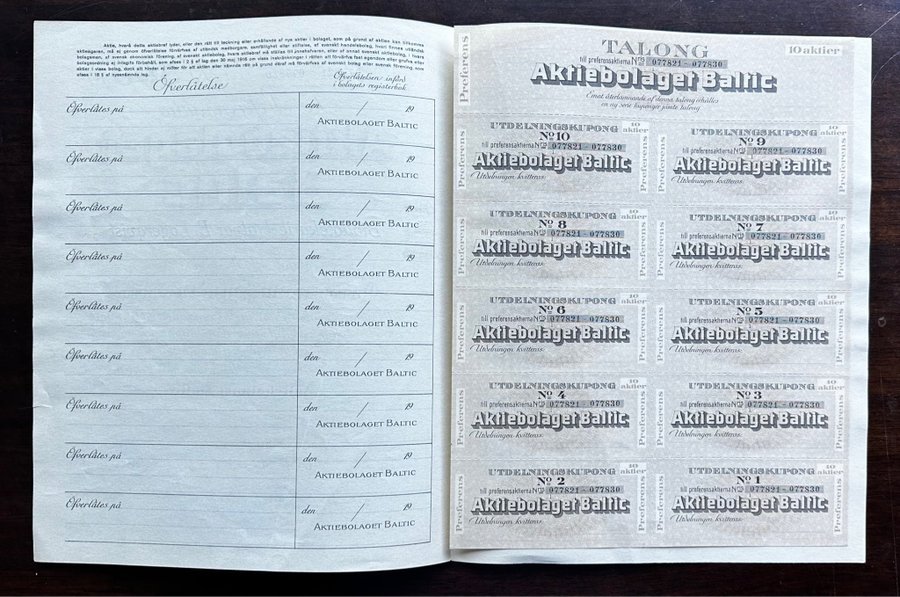 Aktie, hvarå detta aktiebref lyder, eller den rätt till teckning eller erhållande af nya aktier i bolaget, som på grund af aktien kan tillkomma
aktieägaren, må ej genom öfverlåtelse förvärfvas af utländsk medborgare, samfällighet eller stiftelse, af svenskt handelsbolag, hvari finnes utländsk
bolagsman, af svensk ekonomisk förening, af svenskt aktiebolag, hvars aktiebref må ställas till innehafvaren, eller af annat svenskt aktiebolag, i hvars
bolagsordning ej intagits förbehåll, som afses i 2 § af lag den 30 maj 1916 om vissa inskränkningar i rätten att förvärfva fast egendom eller grufva eller
aktier i vissa bolag, dock att hinder ej möter för att aktien eller nämnda rätt på grund däraf må förvärfvas af svenskt bolag eller svensk förening, som
afses i 18 § af nyssnämnda lag.
Öfverlåtelse
Öfverlåtelsen införd
i bolagets registerbok
Öfverlåtes på
den / 19
AKTIEBOLAGET BALTIC
Öfverlåtes på
den / 19
AKTIEBOLAGET BALTIC
Öfverlåtes på
den / 19
AKTIEBOLAGET BALTIC
Öfverlåtes på
den / 19
AKTIEBOLAGET BALTIC
Öfverlåtes på
den / 19
AKTIEBOLAGET BALTIC
Öfverlåtes på
den / 19
AKTIEBOLAGET BALTIC
Öfverlåtes på
den / 19
AKTIEBOLAGET BALTIC
Öfverlåtes på
den / 19
AKTIEBOLAGET BALTIC
Öfverlåtes på
den / 19
AKTIEBOLAGET BALTIC
Preferens
TALONG
10 aktier
till preferensaktierna Nos 077821 - 077830
Aktiebolaget Baltic
Emot återlämnande af denna talong erhålles
en ny serie kuponger jämte talong
Preferens
UTDELNINGSKUPONG
10 aktier
No 10
till preferensaktierna Nos 077821 - 077830
Aktiebolaget Baltic
Utdelningen kvitteras:
Preferens
UTDELNINGSKUPONG
10 aktier
No 9
till preferensaktierna Nos 077821 - 077830
Aktiebolaget Baltic
Utdelningen kvitteras:
Preferens
UTDELNINGSKUPONG
10 aktier
No 8
till preferensaktierna Nos 077821 - 077830
Aktiebolaget Baltic
Utdelningen kvitteras:
Preferens
UTDELNINGSKUPONG
10 aktier
No 7
till preferensaktierna Nos 077821 - 077830
Aktiebolaget Baltic
Utdelningen kvitteras:
Preferens
UTDELNINGSKUPONG
10 aktier
No 6
till preferensaktierna Nos 077821 - 077830
Aktiebolaget Baltic
Utdelningen kvitteras:
Preferens
UTDELNINGSKUPONG
10 aktier
No 5
till preferensaktierna Nos 077821 - 077830
Aktiebolaget Baltic
Utdelningen kvitteras:
Preferens
UTDELNINGSKUPONG
10 aktier
No 4
till preferensaktierna Nos 077821 - 077830
Aktiebolaget Baltic
Utdelningen kvitteras:
Preferens
UTDELNINGSKUPONG
10 aktier
No 3
till preferensaktierna Nos 077821 - 077830
Aktiebolaget Baltic
Utdelningen kvitteras:
Preferens
UTDELNINGSKUPONG
10 aktier
No 2
till preferensaktierna Nos 077821 - 077830
Aktiebolaget Baltic
Utdelningen kvitteras:
Preferens
UTDELNINGSKUPONG
10 aktier
No 1
till preferensaktierna Nos 077821 - 077830
Aktiebolaget Baltic
Utdelningen kvitteras: